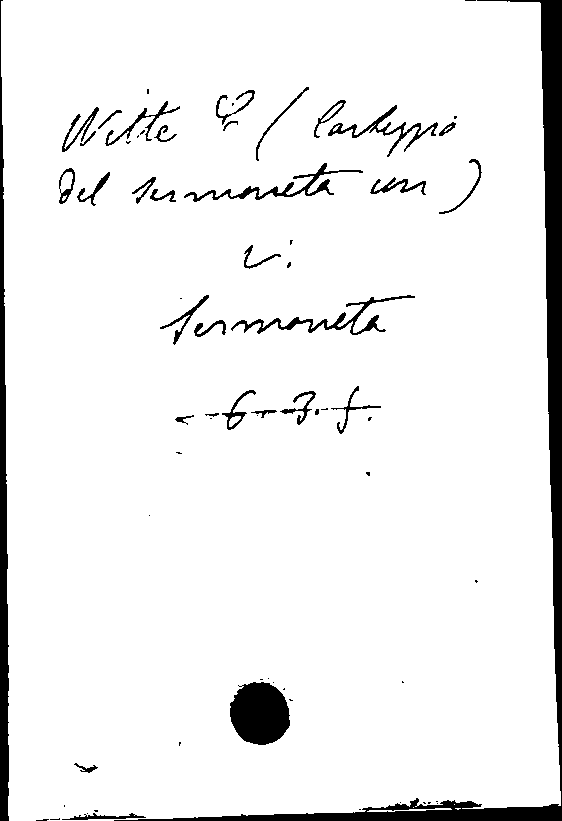 Witte C. (Carteggio
del Sermoneta con)
v:
Sermoneta